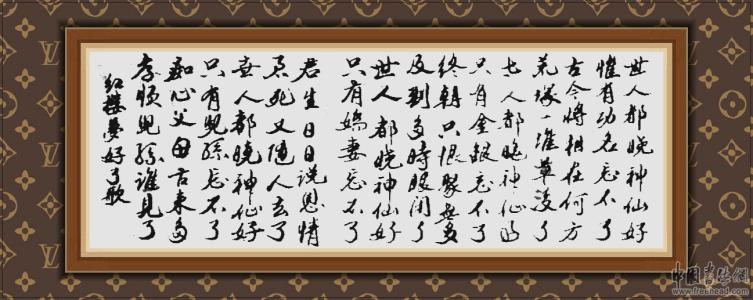 世人都晓神仙好
惟有功名忘不了
古今将相在何方
荒塚一堆草没了
世人都晓神仙好
只有金银忘不了
终朝只恨聚无多
及到多时眼闭了
世人都晓神仙好
只有嬌妻忘不了
君生日日说恩情
君死又随人去了
世人都晓神仙好
只有兒孫忘不了
痴心父母古来多
孝顺兒孫谁见了
红楼夢好了歌
中國書法網
www.freehead.com